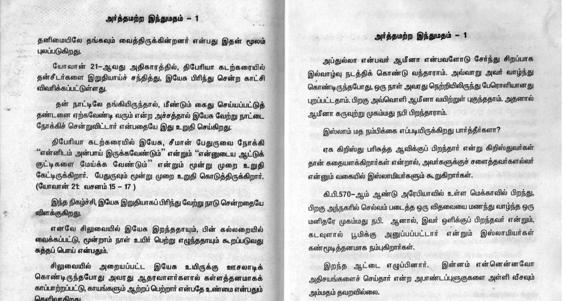 அர்த்தமற்ற இந்துமதம் – 1
தனிமையிலே தங்கவும் வைத்திருக்கின்றனர் என்பது இதன் மூலம்
புலப்படுகிறது.
யோவான் 21-ஆவது அதிகாரத்தில், திபேரியா கடற்கரையில்
தன்சீடர்களை இறுதியாய்ச் சந்தித்து, இயேசு பிரிந்து சென்ற காட்சி
விவரிக்கப்பட்டுள்ளது.
தன் நாட்டிலே தங்கியிருந்தால், மீண்டும் கைது செய்யப்பட்டுத்
தண்டனை ஏற்கவேண்டி வரும் என்ற அச்சத்தால் இயேசு வேற்று நாட்டை
நோக்கிச் சென்றுவிட்டார் என்பதையே இது உறுதி செய்கிறது.
திபேரியா கடற்கரையில் இயேசு, சீமான் பேதுருவை நோக்கி
“என்னிடம் அன்பாய் இருக்கவேண்டும்” என்றும் “என்னுடைய ஆட்டுக்
குட்டிகளை மேய்க்க வேண்டும்” என்றும் மூன்று முறை உறுதி
கேட்டிருக்கிறார். பேதுருவும் மூன்று முறை உறுதி கொடுத்திருக்கிறார்.
(யோவான் 21: வசனம் 15 – 17 )
இந்த நிகழ்ச்சி, இயேசு இறுதியாகப் பிரிந்து வேற்று நாடு சென்றதையே
விளக்குகிறது.
எனவே சிலுவையில் இயேசு இறந்ததாயும், பின் கல்லறையில்
வைக்கப்பட்டு, மூன்றாம் நாள் உயிர் பெற்று எழுந்ததாயும் கூறப்படுவது
சுத்தப் பொய் என்பதும்.
சிலுவையில் அறையப்பட்ட இயேசு உயிருக்கு ஊசலாடிக்
கொண்டிருந்தபோது அவரது ஆதரவாளர்களால் கள்ளத்தனமாகக்
காப்பாற்றப்பட்டு, காயங்களும் ஆற்றப் பெற்றார் என்பதே உண்மை என்பதும்
தெளிவாகிறது.
அர்த்தமற்ற இந்துமதம் – 1
அப்துல்லா என்பவர் ஆமீனா என்பவளோடு சேர்ந்து சிறப்பாக
இல்வாழ்வு நடத்திக் கொண்டு வந்தாராம். அவ்வாறு அவர் வாழ்ந்து
கொண்டிருந்தபோது, ஒரு நாள் அவரது நெற்றியிலிருந்து பேரொளியானது
புறப்பட்டதாம். பிறகு அவ்வொளி ஆமீனா வயிற்றுள் புகுந்ததாம். அதனால்
ஆமீனா கருவுற்று முகம்மது நபி பிறந்தாராம்.
இஸ்லாம் மத நம்பிக்கை எப்படியிருக்கிறது பார்த்தீர்களா?
ஏசு கிறிஸ்து பரிசுத்த ஆவிக்குப் பிறந்தார் என்று கிறிஸ்துவர்கள்
தான் கதையளக்கிறார்கள் என்றால், அவர்களுக்குச் சளைத்தவர்களல்லர்
என்னும் வகையில் இஸ்லாமியர்களும் கூறுகிறார்கள்.
கி.பி.570-ஆம் ஆண்டு அரேபியாவில் உள்ள மெக்காவில் பிறந்து,
பிறகு அந்நகரில் செல்வம் படைத்த ஒரு விதவையை மணந்து வாழ்ந்த ஒரு
மனிதரே முகம்மது நபி. ஆனால், இவர் ஒளிக்குப் பிறந்தவர் என்றும்,
கடவுளால் பூமிக்கு அனுப்பப்பட்டார் என்றும் இஸ்லாமியர்கள்
கண்மூடித்தனமாக நம்புகிறார்கள்.
இறந்த ஆட்டை எழுப்பினார். இன்னம் என்னென்னவோ
அதிசயங்களைச் செய்தார் என்ற அபாண்டப்புளுகுகளை அள்ளி வீசவும்
அம்மதம் தவறவில்லை.